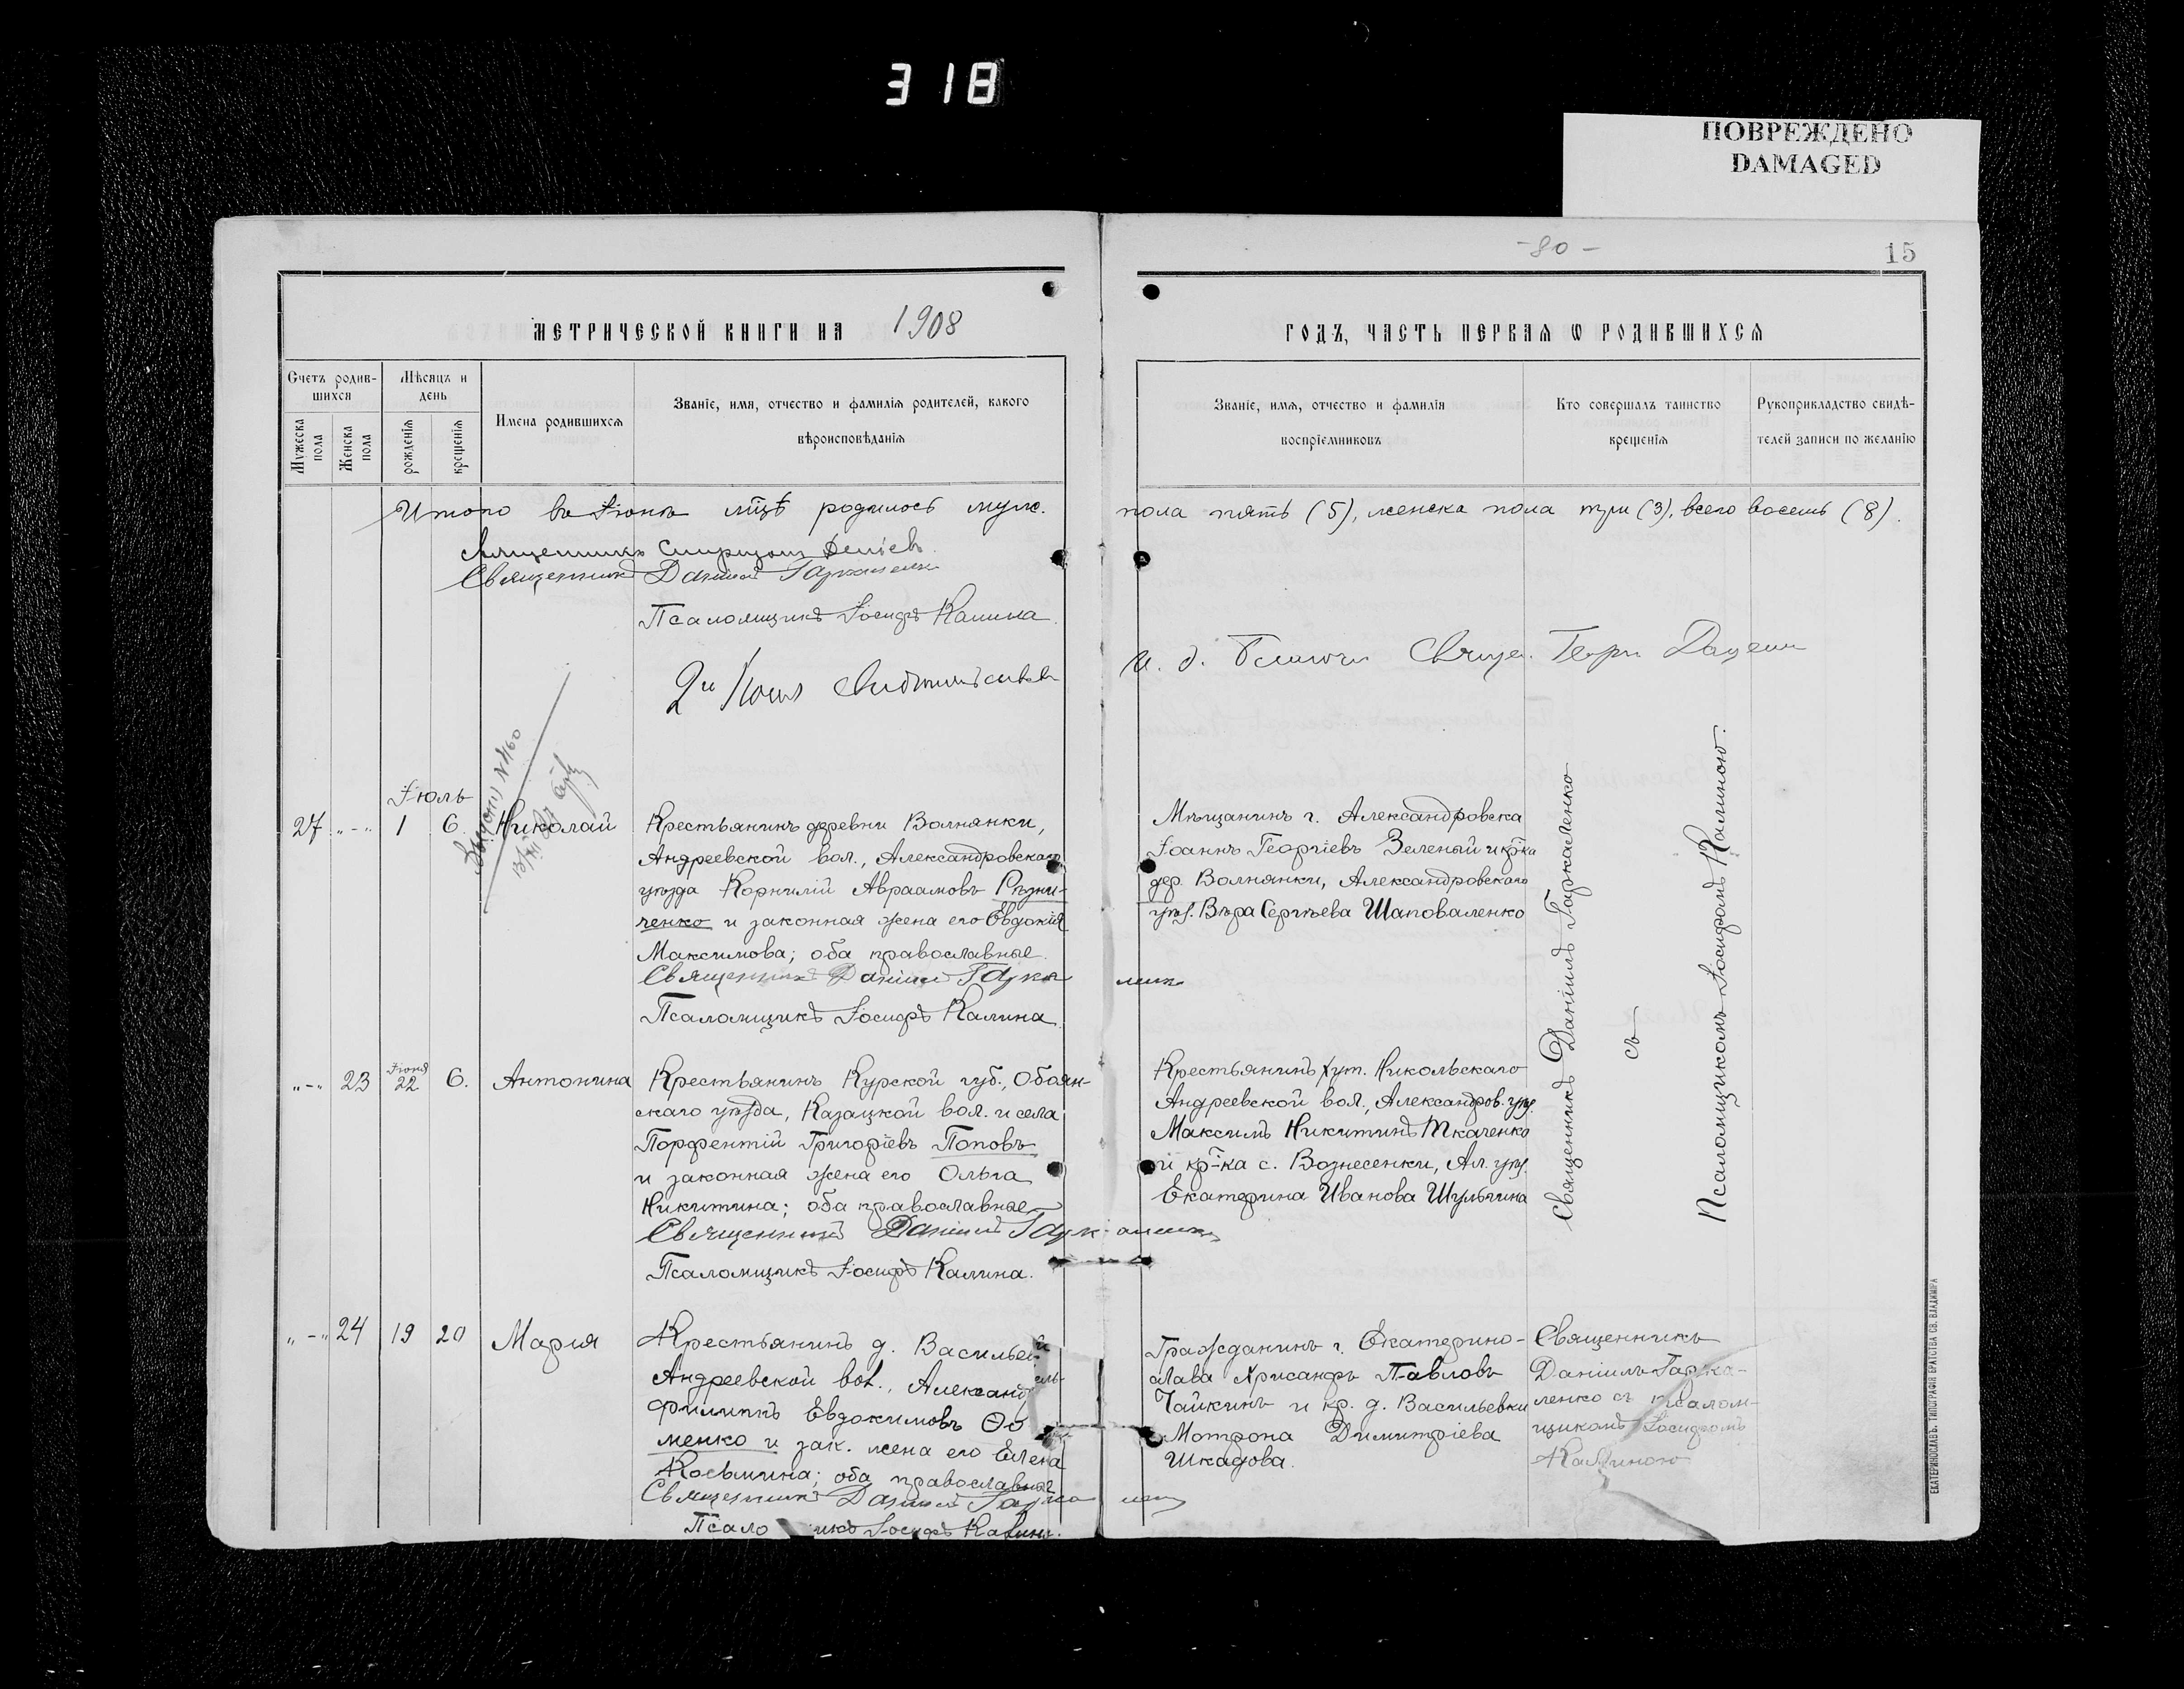 318
ПОВРЕЖДЕНО
DAMAGED
-80-
15
МЕТРИЧЕСКОЙ КНИГИ НА 1908
ГОДЪ, ЧАСТЬ ПЕРВАЯ Ѡ РОДИВШИХСЯ
Счетъ родив-
шихся
Мужеска
пола
Женска
пола
Мѣсяцъ и
день
рожденія
крещенія
Имена родившихся
Званіе, имя, отчество и фамилія родителей, какого
вѣроисповѣданія
Званіе, имя, отчество и фамилія
воспріемниковъ
Кто совершалъ таинство
крещенія
Рукоприкладство свидѣ-
телей записи по желанію
Итого въ Іюнѣ мцѣ родилось муж. пола пять (5), женска пола три (3), всего восемь (8).
Священникъ
Священникъ Даніилъ Гаркаленко
Псаломщикъ Іосифъ Калина
И. д. Свящ.
Іюль
27 "-" 1 6 Николай
Крестьянинъ деревни Волнянки,
Андреевской вол., Александровскаго
уѣзда Корнилій Авраамовъ Рѣзни-
ченко и законная жена его Евдокія
Максимова; оба православные.
Священникъ Даніилъ Гаркаленко
Псаломщикъ Іосифъ Калина
Мѣщанинъ г. Александровска
Іоаннъ Георгіевъ Зеленый и кр-ка
дер. Волнянки, Александровскаго
уѣз. Вѣра Сергѣева Шаповаленко
Священникъ Даніилъ Гаркаленко
съ
Псаломщикомъ Іосифомъ Калиною.
"-" 23 Іюня 22 6. Антонина
Крестьянинъ Курской губ., Обоян-
скаго уѣзда, Казацкой вол. и села
Порфентій Григоріевъ Поповъ
и законная жена его Ольга
Никитина; оба православные
Священникъ Даніилъ Гаркаленко
Псаломщикъ Іосифъ Калина.
Крестьянинъ хут. Никольскаго
Андреевской вол., Александров. уѣз.
Максимъ Никитинъ Ткаченко
и кр-ка с. Вознесенки, Ал. уѣз.
Екатерина Иванова Шульгина
"-" 24 19 20 Марія
Крестьянинъ д. Васильев
Андреевской вол., Александ
Филиппъ Евдокимовъ Ѳо
менко и зак. жена его Елена
Косьмина; оба православные
Священникъ Даніилъ Гаркаленко
Псало икъ Іосифъ Калина.
Гражданинъ г. Екатерино-
слава Хрисанфъ Павловъ
Чайкинъ и кр. д. Васильевки
Мотрона Димитріева
Шкадова.
Священникъ
Даніилъ Гарка-
ленко съ псалом-
щикомъ Іосифомъ
Калиною
ЕКАТЕРИНОСЛАВЪ. ТИПОГРАФІЯ БРАТСТВА СВ. ВЛАДИМІРА